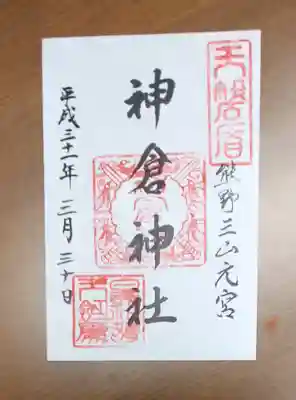 天磐盾
熊野三山元宮
神倉神社
平成三十一年三月三十日